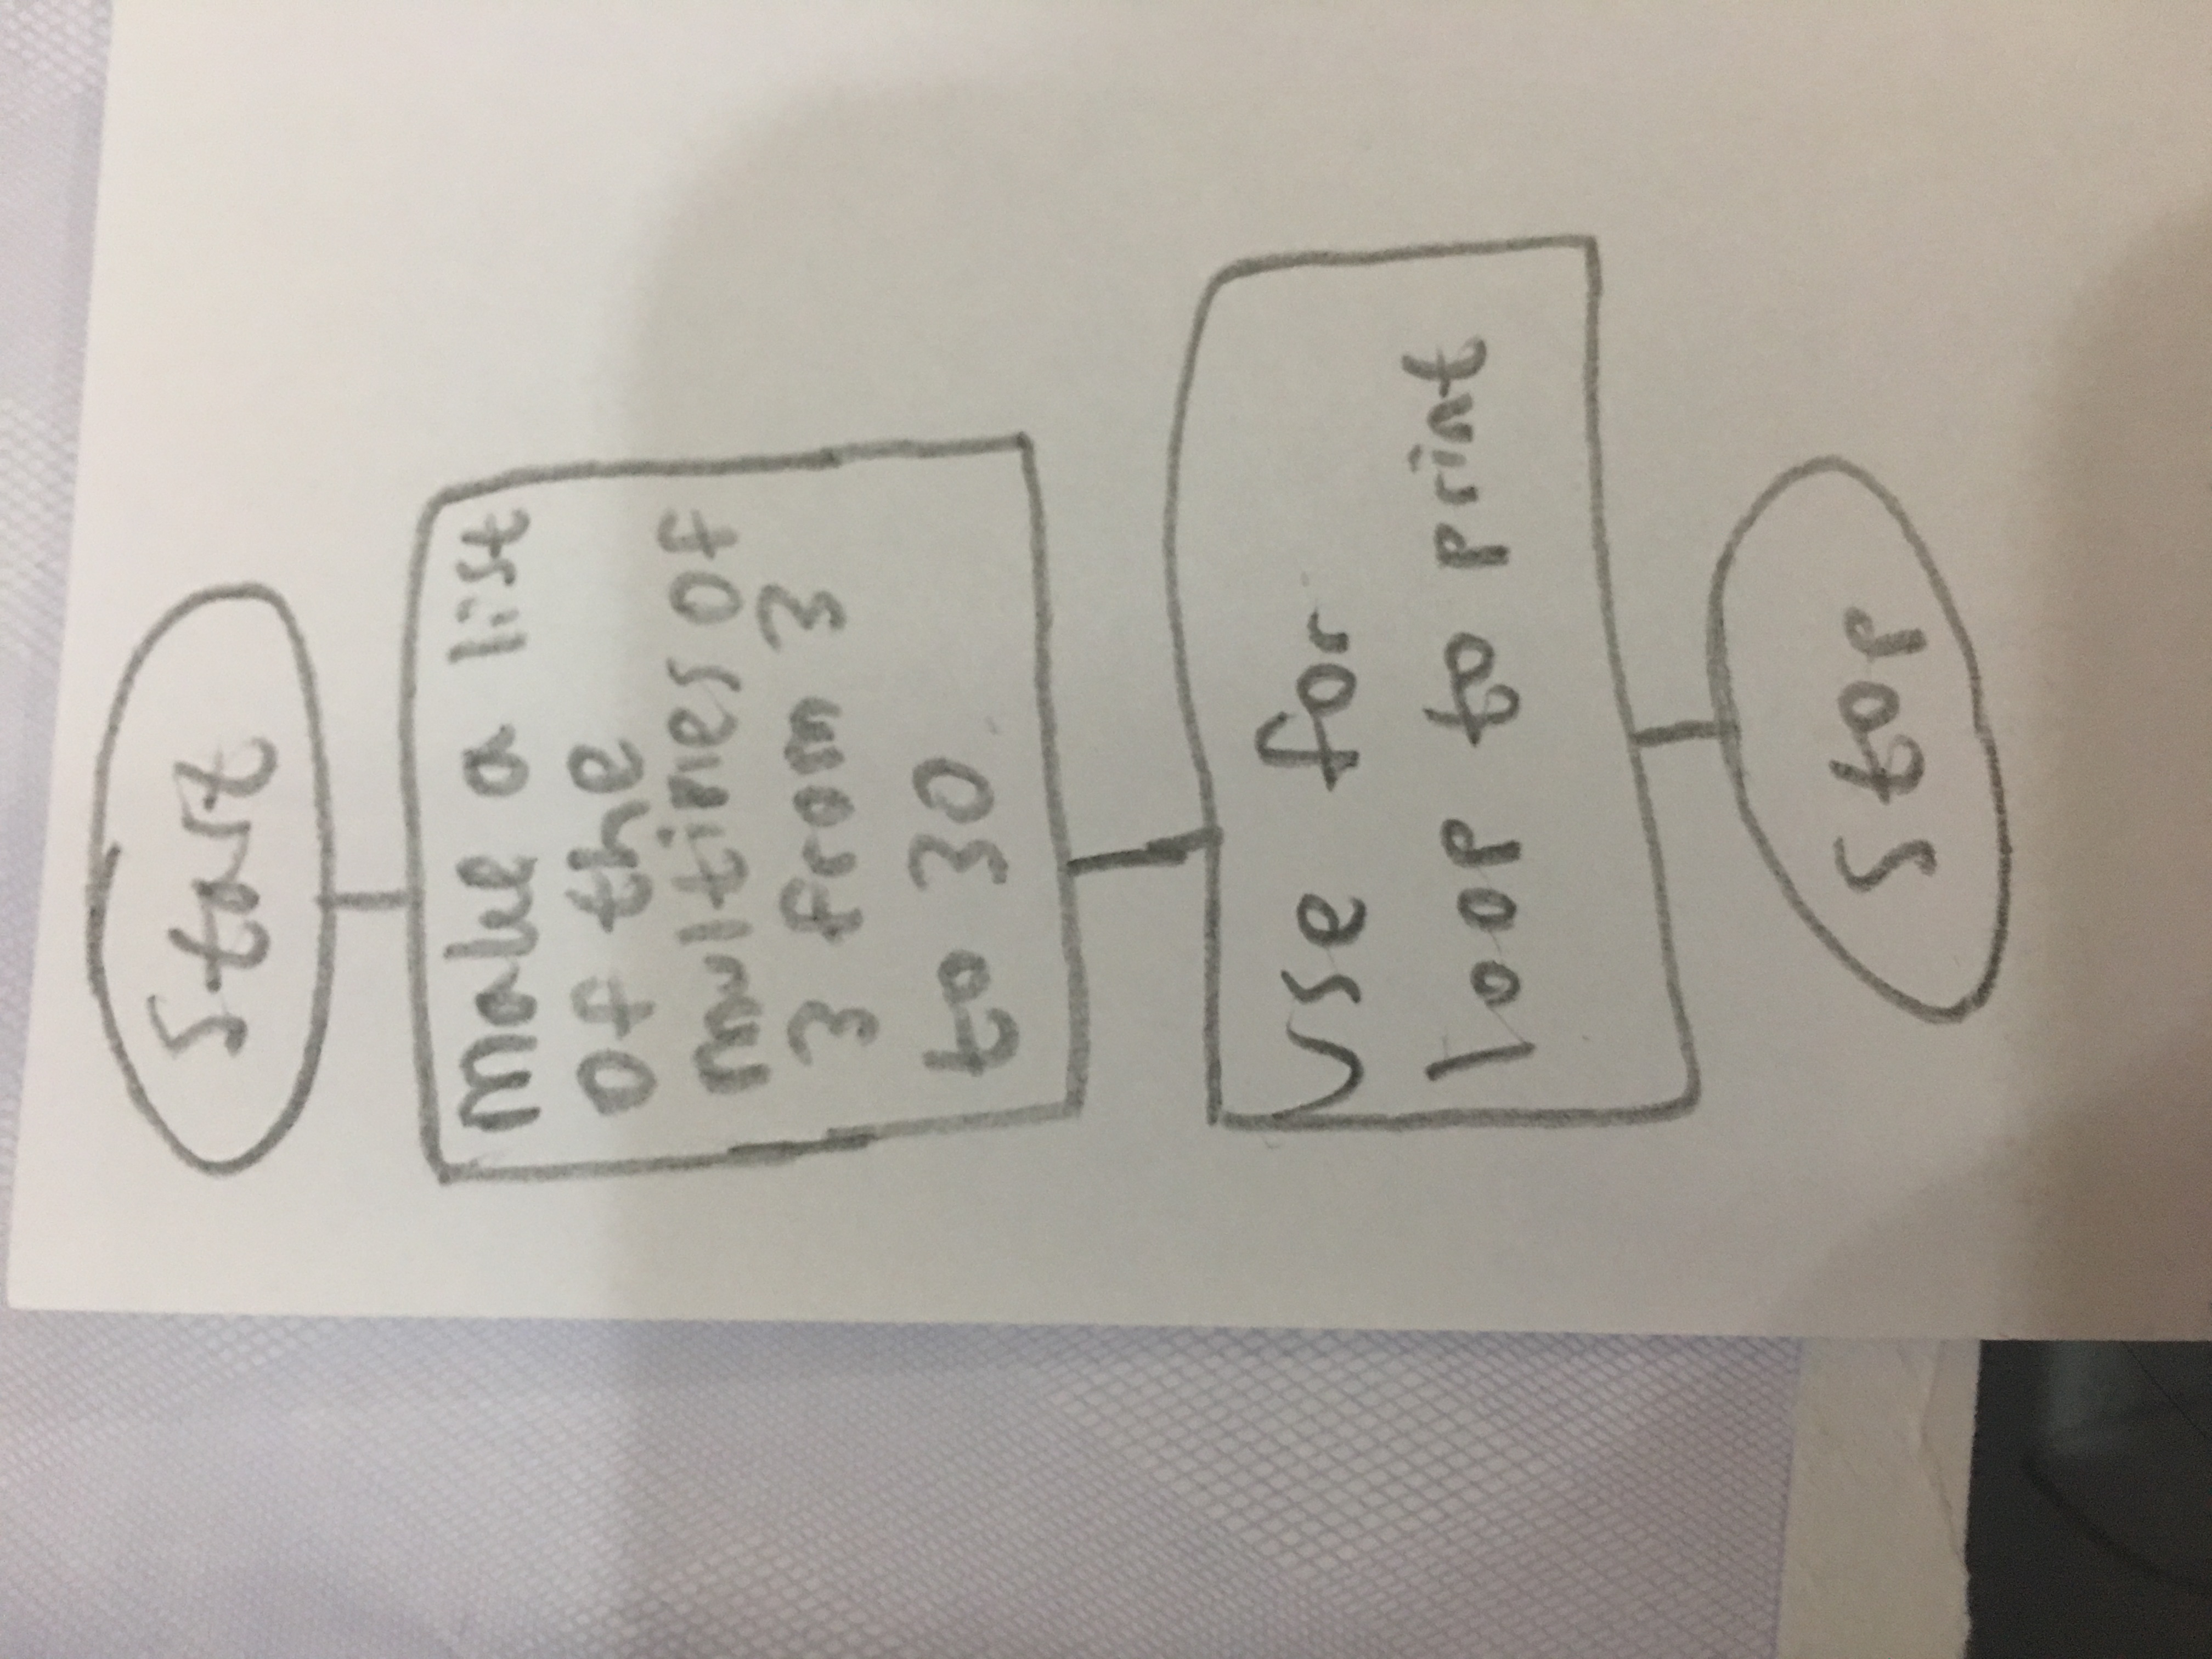 Start
make a list
of the
multiples of
3 from 3
to 30
Use for
loop to print
Stop